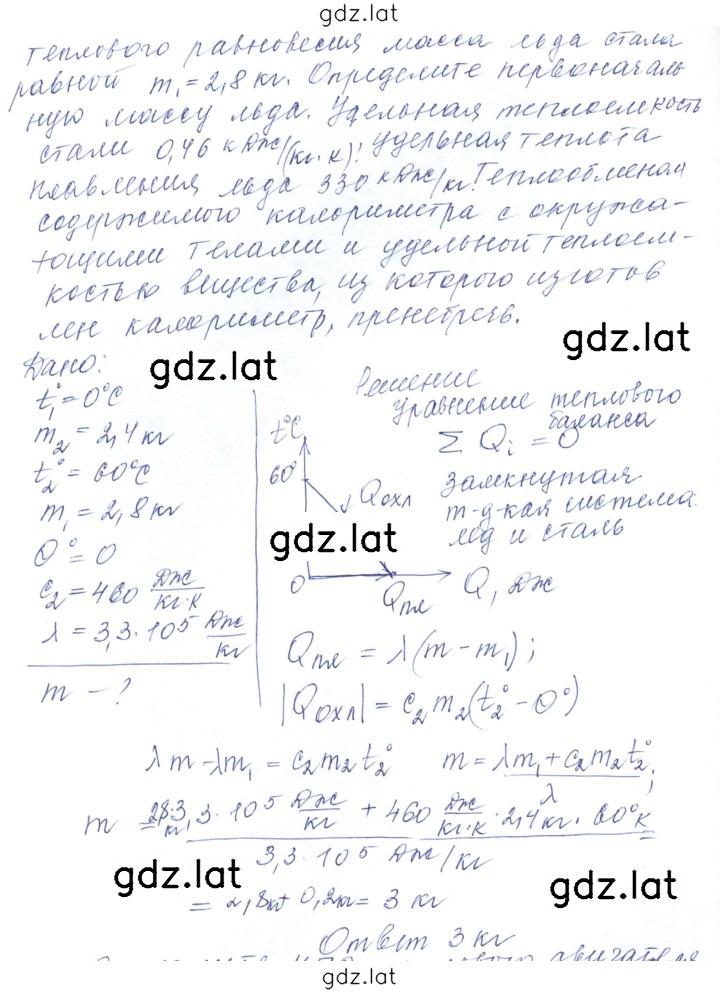 gdz.lat
теплового равновесия масса льда стала
равной m₁ = 2,8 кг. Определите первоначаль
ную массу льда. Удельная теплоемкость
стали 0,46 кДж/(кг·К). Удельная теплота
плавления льда 330 кДж/кг. Теплообменом
содержимого калориметра с окружа-
ющими телами и удельной теплоем-
костью вещества, из которого изготов
лен калориметр, пренебречь.
gdz.lat
Дано:
gdz.lat
t₁° = 0°C
m₂ = 2,4 кг
t₂° = 60°C
m₁ = 2,8 кг
Θ° = 0
c₂ = 460 Дж/кг·К
λ = 3,3·10⁵ Дж/кг
m – ?
Решение
Уравнение теплового
баланса
Σ Qᵢ = 0
замкнутая
т-д-кая система
лёд и сталь
t°C
60°
Qохл
gdz.lat
0
Qпл
Q, Дж
Qпл = λ(m – m₁);
|Qохл| = c₂m₂(t₂° – Θ°)
λm – λm₁ = c₂m₂t₂° m = λm₁ + c₂m₂t₂° / λ;
m = 2,8·3,3·10⁵ Дж/кг + 460 Дж/кг·К · 2,4 кг · 60°К
кг
3,3·10⁵ Дж/кг
gdz.lat
= 2,8кг + 0,2кг = 3 кг
gdz.lat
Ответ 3 кг
двигателя
gdz.lat